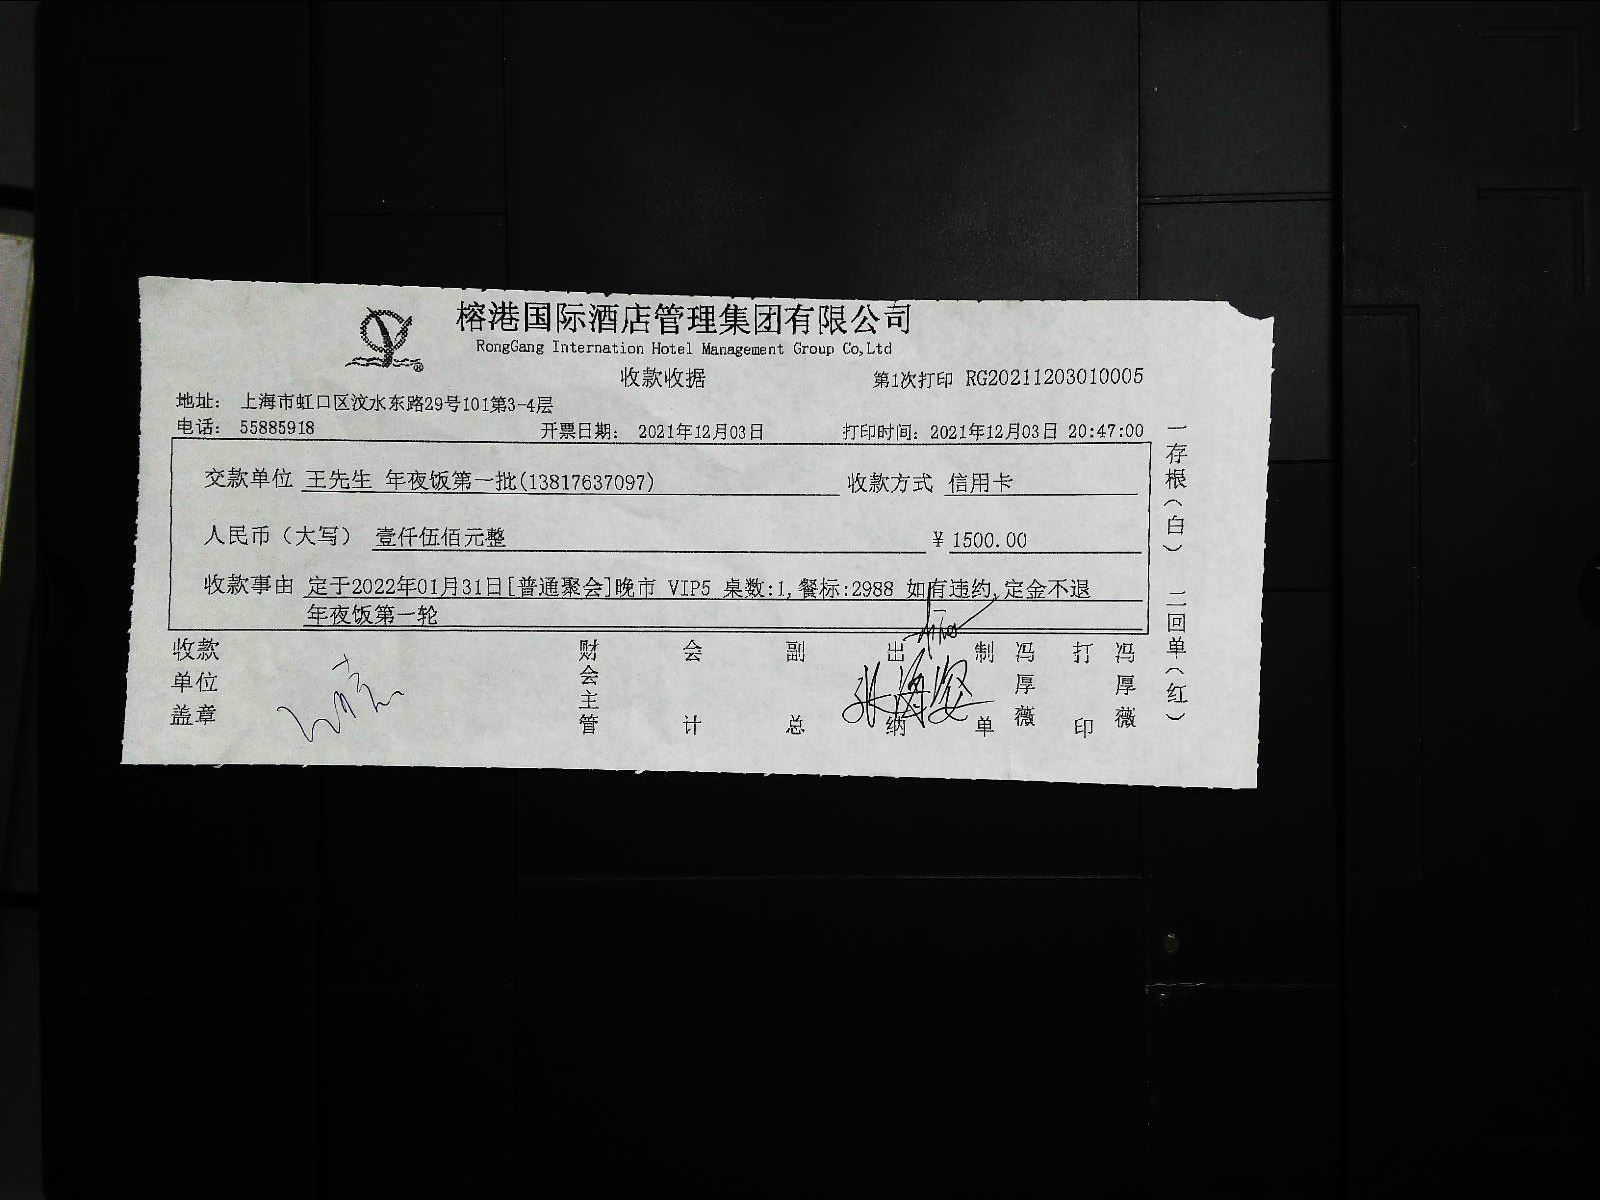 榕港国际酒店管理集团有限公司
RongGang Internation Hotel Management Group Co,Ltd
收款收据 第1次打印 RG20211203010005
地址： 上海市虹口区汶水东路29号101第3-4层
电话： 55885918 开票日期： 2021年12月03日 打印时间：2021年12月03日 20:47:00
交款单位 王先生 年夜饭第一批(13817637097) 收款方式 信用卡
人民币（大写） 壹仟伍佰元整 ¥1500.00
收款事由 定于2022年01月31日[普通聚会]晚市 VIP5 桌数:1,餐标:2988 如有违约,定金不退
年夜饭第一轮
收款单位盖章 财会主管 会计 副总 出纳 张海姿 制单 冯厚薇 打印 冯厚薇
一存根（白） 二回单（红）